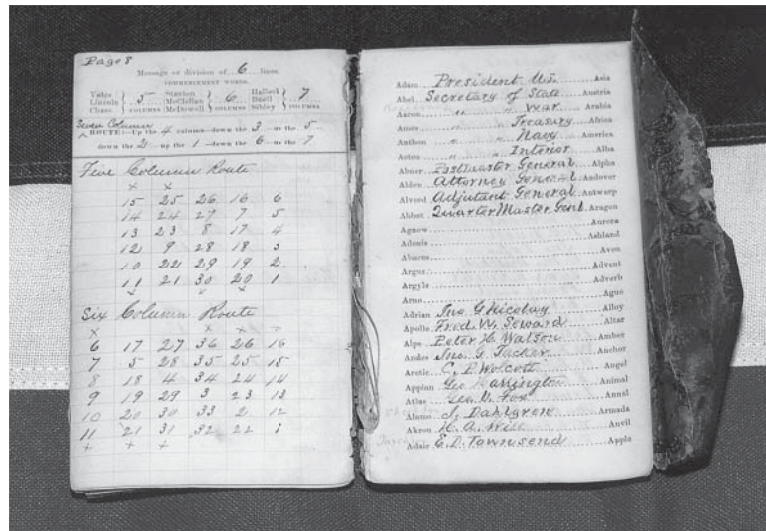 Page 8
Message or division of 6 lines
COMMENCEMENT WORDS.
Yates Stanton Halleck
Lincoln 5 McClellan 6 Buell 7
Chase COLUMNS McDowell COLUMNS Sibley COLUMNS
Seven Column
ROUTE:—Up the 4 column—down the 3—up the 5
down the 2—up the 1—down the 6—up the 7
Five Column Route
x x
15 25 26 16 6
14 24 27 7 5
13 23 8 17 4
12 9 28 18 3
10 22 29 19 2
11 21 30 20 1
Six Column Route
x x x
6 17 27 36 26 16
7 5 28 35 25 15
8 18 4 34 24 14
9 19 29 3 23 13
10 20 30 33 2 12
11 21 31 32 22 1
x x x
Adam President U.S. Asia
Abel Secretary of State Austria
Aaron " " War Arabia
Ames " " Treasury Africa
Anthon " " Navy America
Acton " " Interior Alba
Abner Postmaster General Alpha
Alden Attorney General Andover
Alvord Adjutant General Antwerp
Abbot Quarter Master Genl Aragon
Agnew Aurora
Adonis Ashland
Abacus Avon
Argus Advent
Argyle Adverb
Arno Ague
Adrian Jno G Nicolay Alloy
Apollo Fred W. Seward Altar
Alps Peter H. Watson Amber
Andes Jno. Tucker Anchor
Arctic C. P. Wolcott Angel
Appian Geo Harrington Animal
Atlas Geo. V. Fox Annal
Alamo J. Dahlgren Armada
Akron Anvil
Adair E. D. Townsend Apple